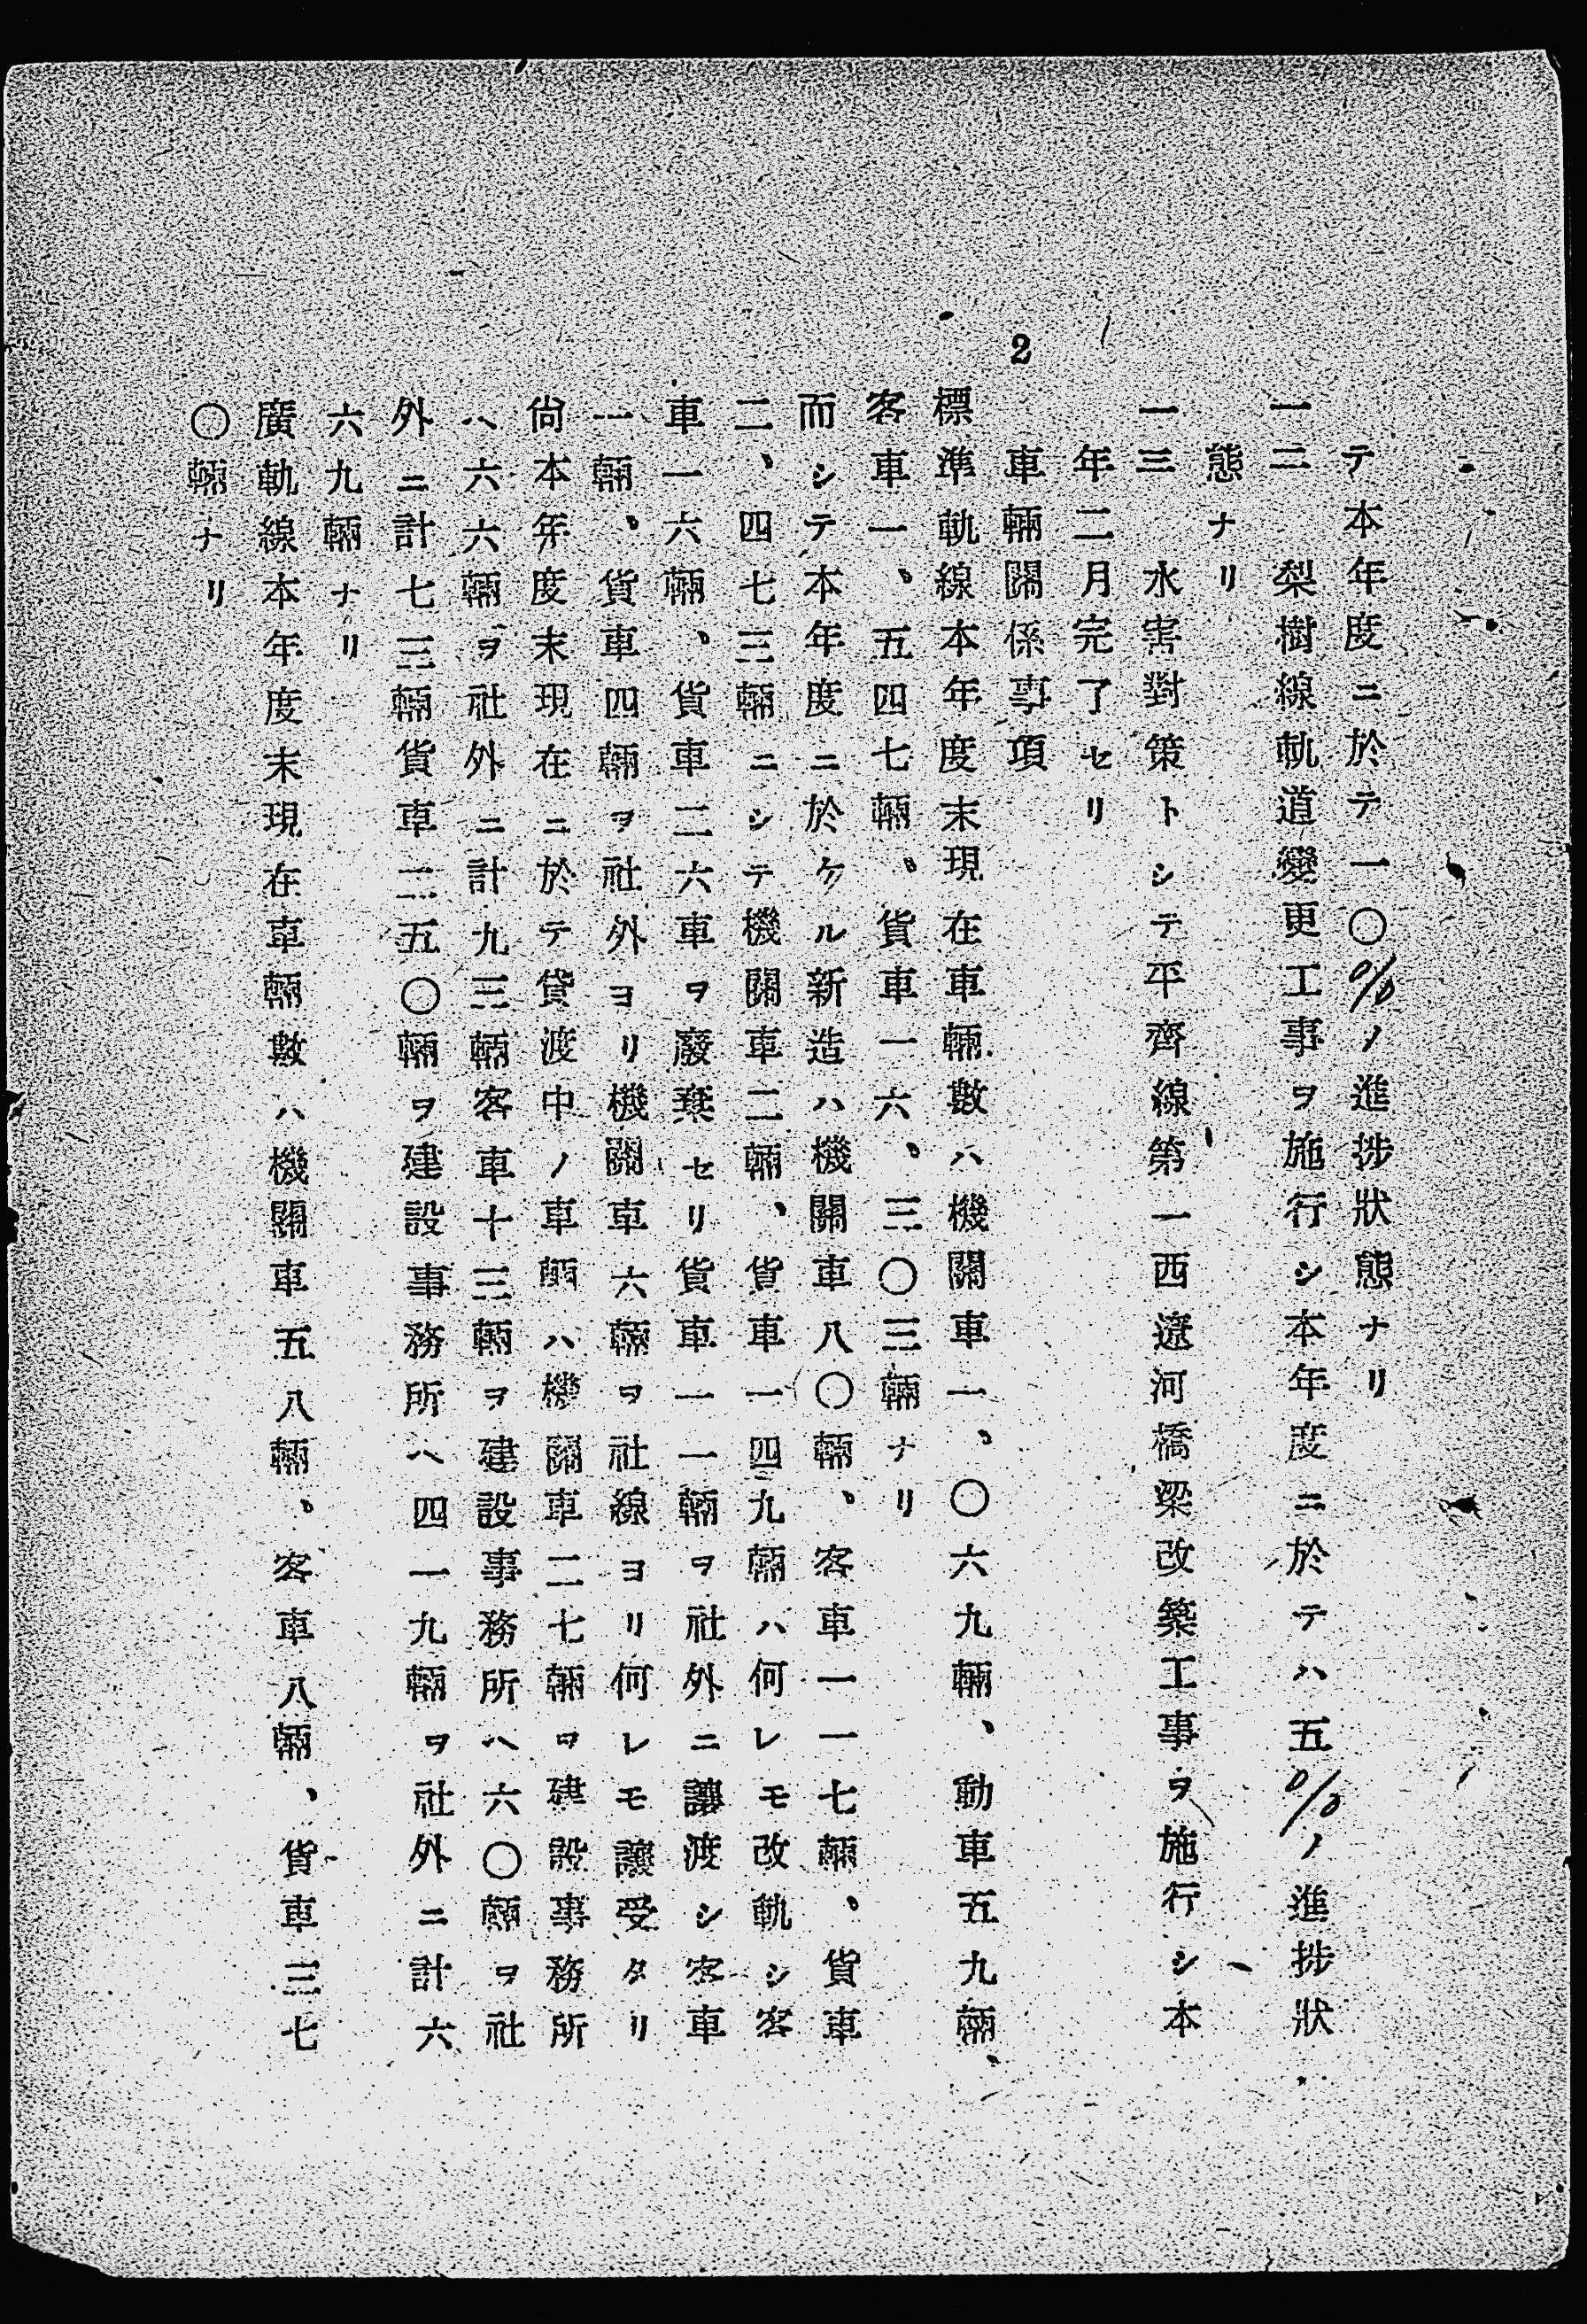 テ本年度ニ於テ一〇%ノ進捗狀態ナリ
一二　梨樹線軌道變更工事ヲ施行シ本年度ニ於テハ五%ノ進捗狀
態ナリ
一三　水害對策トシテ平齊線第一西遼河橋梁改築工事ヲ施行シ本
年二月完了セリ
2　車輛關係事項
標準軌線本年度末現在車輛數ハ機關車一、〇六九輛、動車五九輛、
客車一、五四七輛、貨車一六、三〇三輛ナリ
而シテ本年度ニ於ケル新造ハ機關車八〇輛、客車一一七輛、貨車
二、四七三輛ニシテ機關車二輛、貨車一四九輛ハ何レモ改軌シ客
車一六輛、貨車二六車ヲ廢棄セリ貨車一一輛ヲ社外ニ讓渡シ客車
一輛、貨車四輛ヲ社外ヨリ機關車六輛ヲ社線ヨリ何レモ讓受タリ
尙本年度末現在ニ於テ貸渡中ノ車輛ハ機關車二七輛ヲ建設事務所
ヘ六六輛ヲ社外ニ計九三輛客車十三輛ヲ建設事務所ヘ六〇輛ヲ社
外ニ計七三輛貨車二五〇輛ヲ建設事務所ヘ四一九輛ヲ社外ニ計六
六九輛ナリ
廣軌線本年度末現在車輛數ハ機關車五八輛、客車八輛、貨車三七
〇輛ナリ